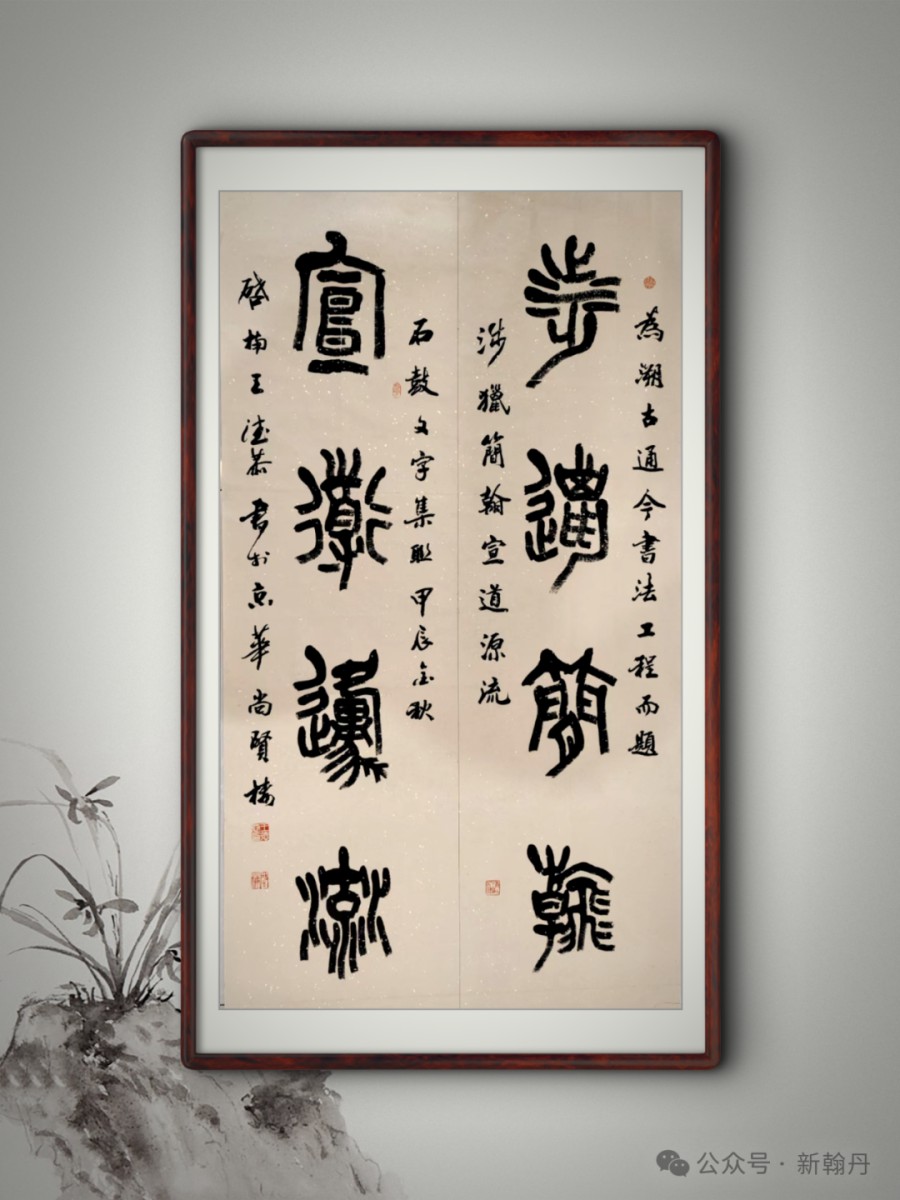 為溯古通今書法工程而題
涉邋簡翰
涉獵簡翰宣道源流
石鼓文字集聯甲辰金秋
宣道邍流
啓楠王德恭書於京華尚賢樓
公众号 · 新翰丹